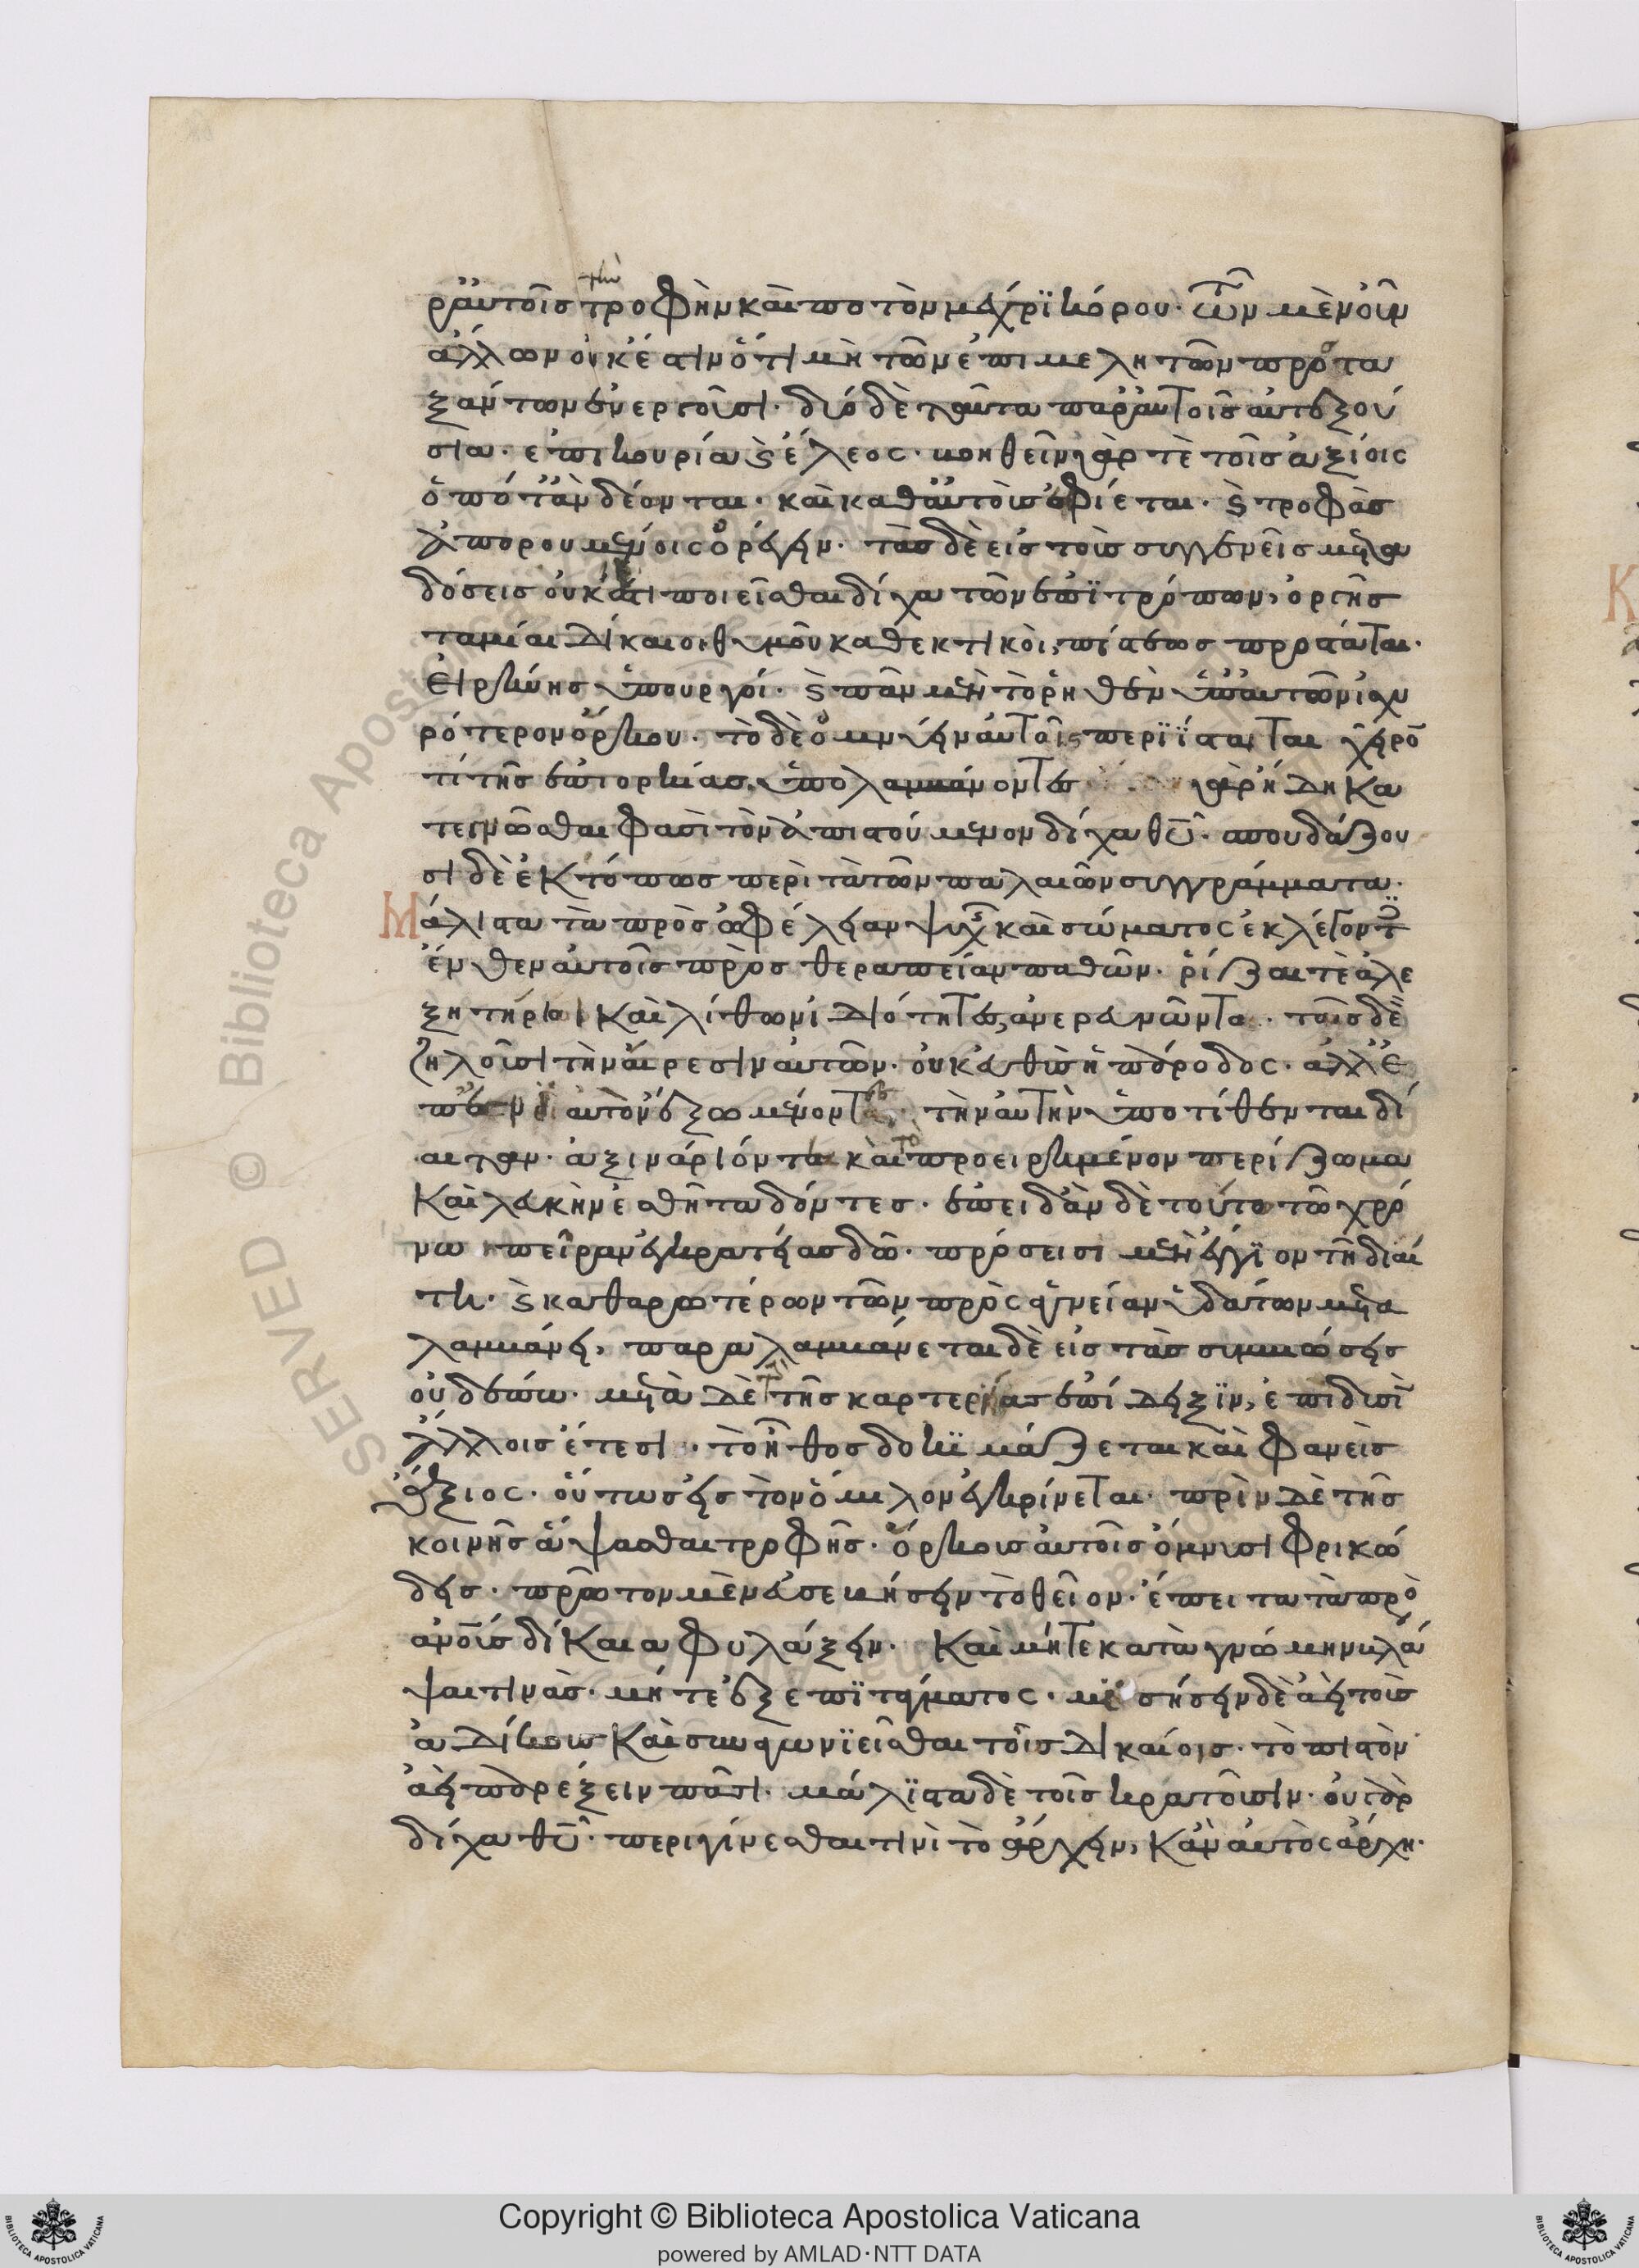 ρ᾽ αὐτοῖς τὴν τροφὴν καὶ ποτὸν μέχρι κόρου· τῶν μὲν οὖν
ἄλλων οὐκ ἔστιν ὅτι μὴ τῶν ἐπιμελητῶν προστα
ξάντων ἐνεργοῦσι· δύο δὲ ταῦτα παρ᾽ αὐτοῖς αὐτεξού
σια· ἐπικουρία καὶ ἔλεος· βοηθεῖν γάρ τε τοῖς ἀξίοις
ὁπόταν δέονται· καὶ καθ᾽ αὑτοὺς ἐφίεται· καὶ τροφὰς
ἀπορουμένοις ὀρέγειν· τὰς δὲ εἰς τοὺς συγγενεῖς μετα
δόσεις οὐκ ἔστι ποιεῖσθαι δίχα τῶν ἐπιτρόπων, ὀργῆς
ταμίαι δίκαιοι. θυμοῦ καθεκτικοί, πίστεως προστάται·
εἰρήνης ὑπουργοί· καὶ πᾶν μὲν τὸ ῥηθὲν ὑπ᾽ αὐτῶν ἰσχυ
ρότερον ὅρκου· τὸ δὲ ὀμνύειν αὐτοῖς περιΐσταται χεῖρο
τι τῆς ἐπιορκίας ὑπολαμβάνοντες γὰρ ἤδη κα
τεγνῶσθαι φασὶ τὸν ἀπιστούμενον δίχα θυ· σπουδάζου
σι δὲ ἐκτόπως περὶ τὰ τῶν παλαιῶν συγγράμματα·
Μάλιστα τὰ πρὸς ὠφέλειαν ψυχ καὶ σώματος ἐκλέγοντ
ἔνθεν αὐτοῖς πρὸς θεραπείαν παθῶν· ῥίζαι τε ἀλε
ξητήριοι καὶ λίθων ἰδιότητες ἀνερευνῶνται· τοῖς δὲ
ζηλοῦσι τὴν αἵρεσιν αὐτῶν· οὐκ εὐθὺς ἡ πάροδος· ἀλλ᾽ ἐ
π᾽ ἐνιαυτὸν ἔξω μένοντες· τὴν αὐτὴν ὑποτίθενται δί
αιταν· ἀξινάριόν τε καὶ τὸ προειρημένον περίζωμα
καὶ λευκὴν ἐσθῆτα δόντες· ἐπειδὰν δὲ τούτω τῶ χρό
νω πεῖραν ἐγκρατείας δῶ· πρόσεισι μὲν ἔγγιον τῆ διαί
τη· καὶ καθαρωτέρων τῶν πρὸς ἁγνείαν ὑδάτων μετα
λαμβάνει, παραλαμβάνεται δὲ εἰς τὰς συμβιώσεις
οὐδέπω· μετὰ δὲ τὴν τῆς καρτερίας ἐπίδειξιν, ἐπὶ δυσὶ
ἄλλοις ἔτεσι· τὸ ἦθος δοκιμάζεται καὶ φανεὶς
ἄξιος· οὕτως εἰς τὸν ὅμιλον ἐγκρίνεται· πρὶν δὲ τῆς
κοινῆς ἅψασθαι τροφῆς· ὅρκους αὐτοῖς ὄμνυσι φρικώ
δεις· πρῶτον μὲν εὐσεβήσειν τὸ θεῖον· ἔπειτα τὰ πρὸ
ἀνοὺς δίκαια φυλάξειν· Καὶ μήτε κατὰ γνώμην βλά
ψαι τινὰς· μήτε ἐξ ἐπιτάγματος· μισήσειν δὲ ἀεὶ τοὺς
ἀδίκους καὶ συναγωνιεῖσθαι τοῖς δικαίοις· τὸ πιστὸν
ἀεὶ παρέξειν πᾶσι· μάλιστα δὲ τοῖς κρατοῦσιν· οὐ γὰρ
δίχα θυ· περιγίνεσθαι τινὶ τὸ ἄρχειν, κἂν αὐτὸς ἄρχη·
Copyright © Biblioteca Apostolica Vaticana
powered by AMLAD·NTT DATA